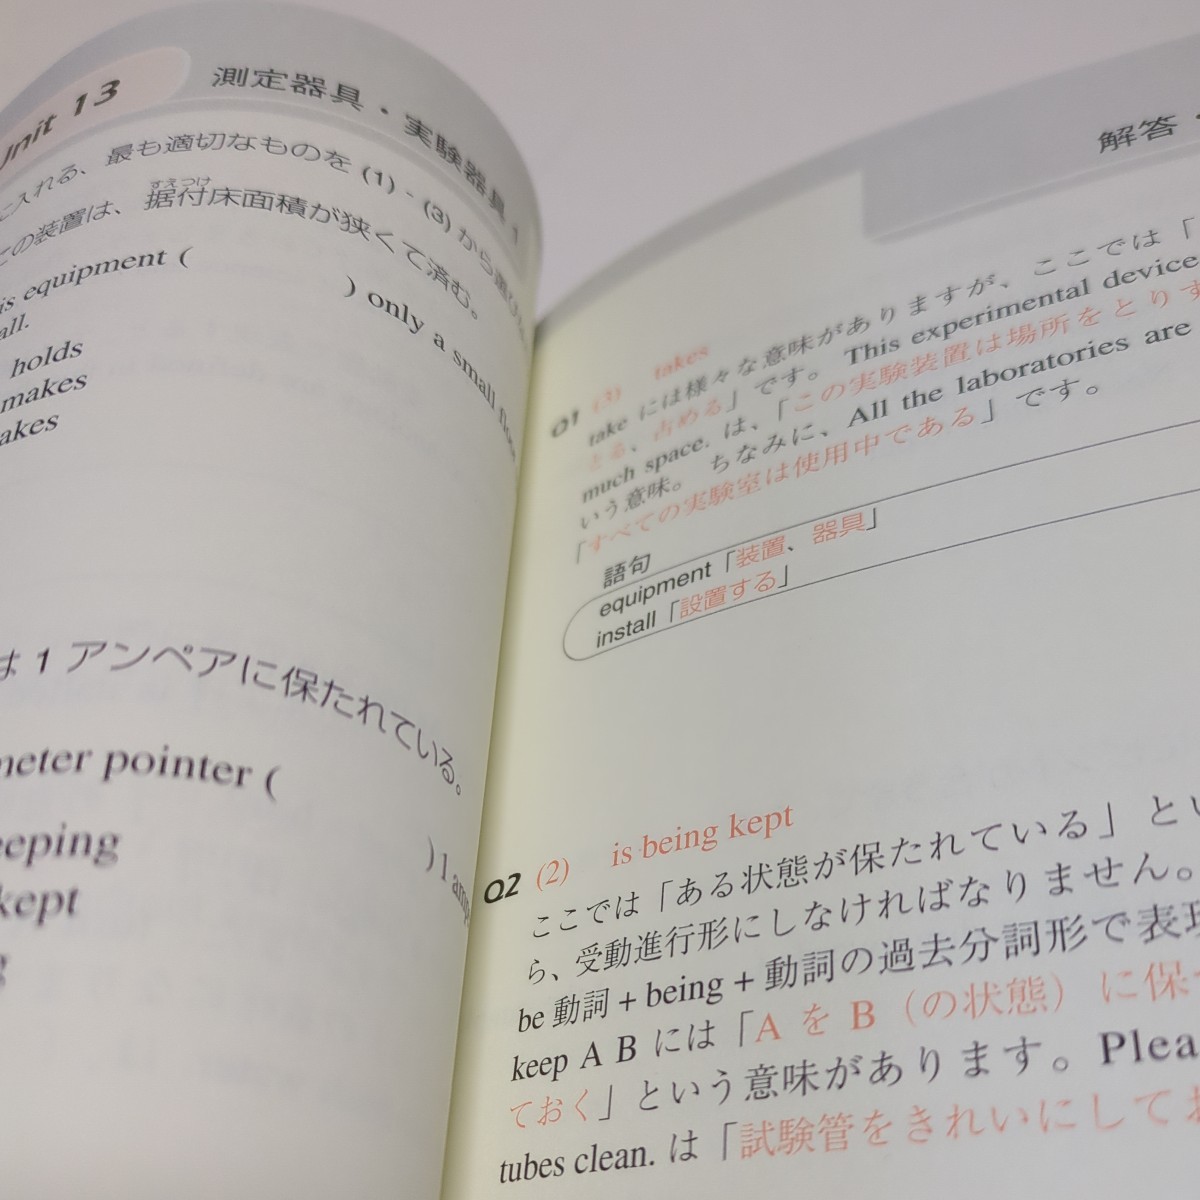 Unit 13
測定器具・実験器具 1
に入れる、最も適切なものを (1) - (3) から選び
この装置は、据付床面積が狭くて済む。
すえつけ
is equipment (          ) only a small floor
all.
holds
makes
akes
は 1 アンペアに保たれている。
meter pointer (          ) 1 amp
eeping
kept
g
解答・
Q1 (3) takes
take には様々な意味がありますが、ここでは「
とる、占める」です。 This experimental device
much space. は、「この実験装置は場所をとりす
いう意味。 ちなみに、All the laboratories are
「すべての実験室は使用中である」です。
語句
equipment「装置、器具」
install「設置する」
Q2 (2) is being kept
ここでは「ある状態が保たれている」とい
ら、受動進行形にしなければなりません。
be 動詞 + being + 動詞の過去分詞形で表現
keep A B には「A を B（の状態）に保
ておく」という意味があります。Plea
tubes clean. は「試験管をきれいにしてお